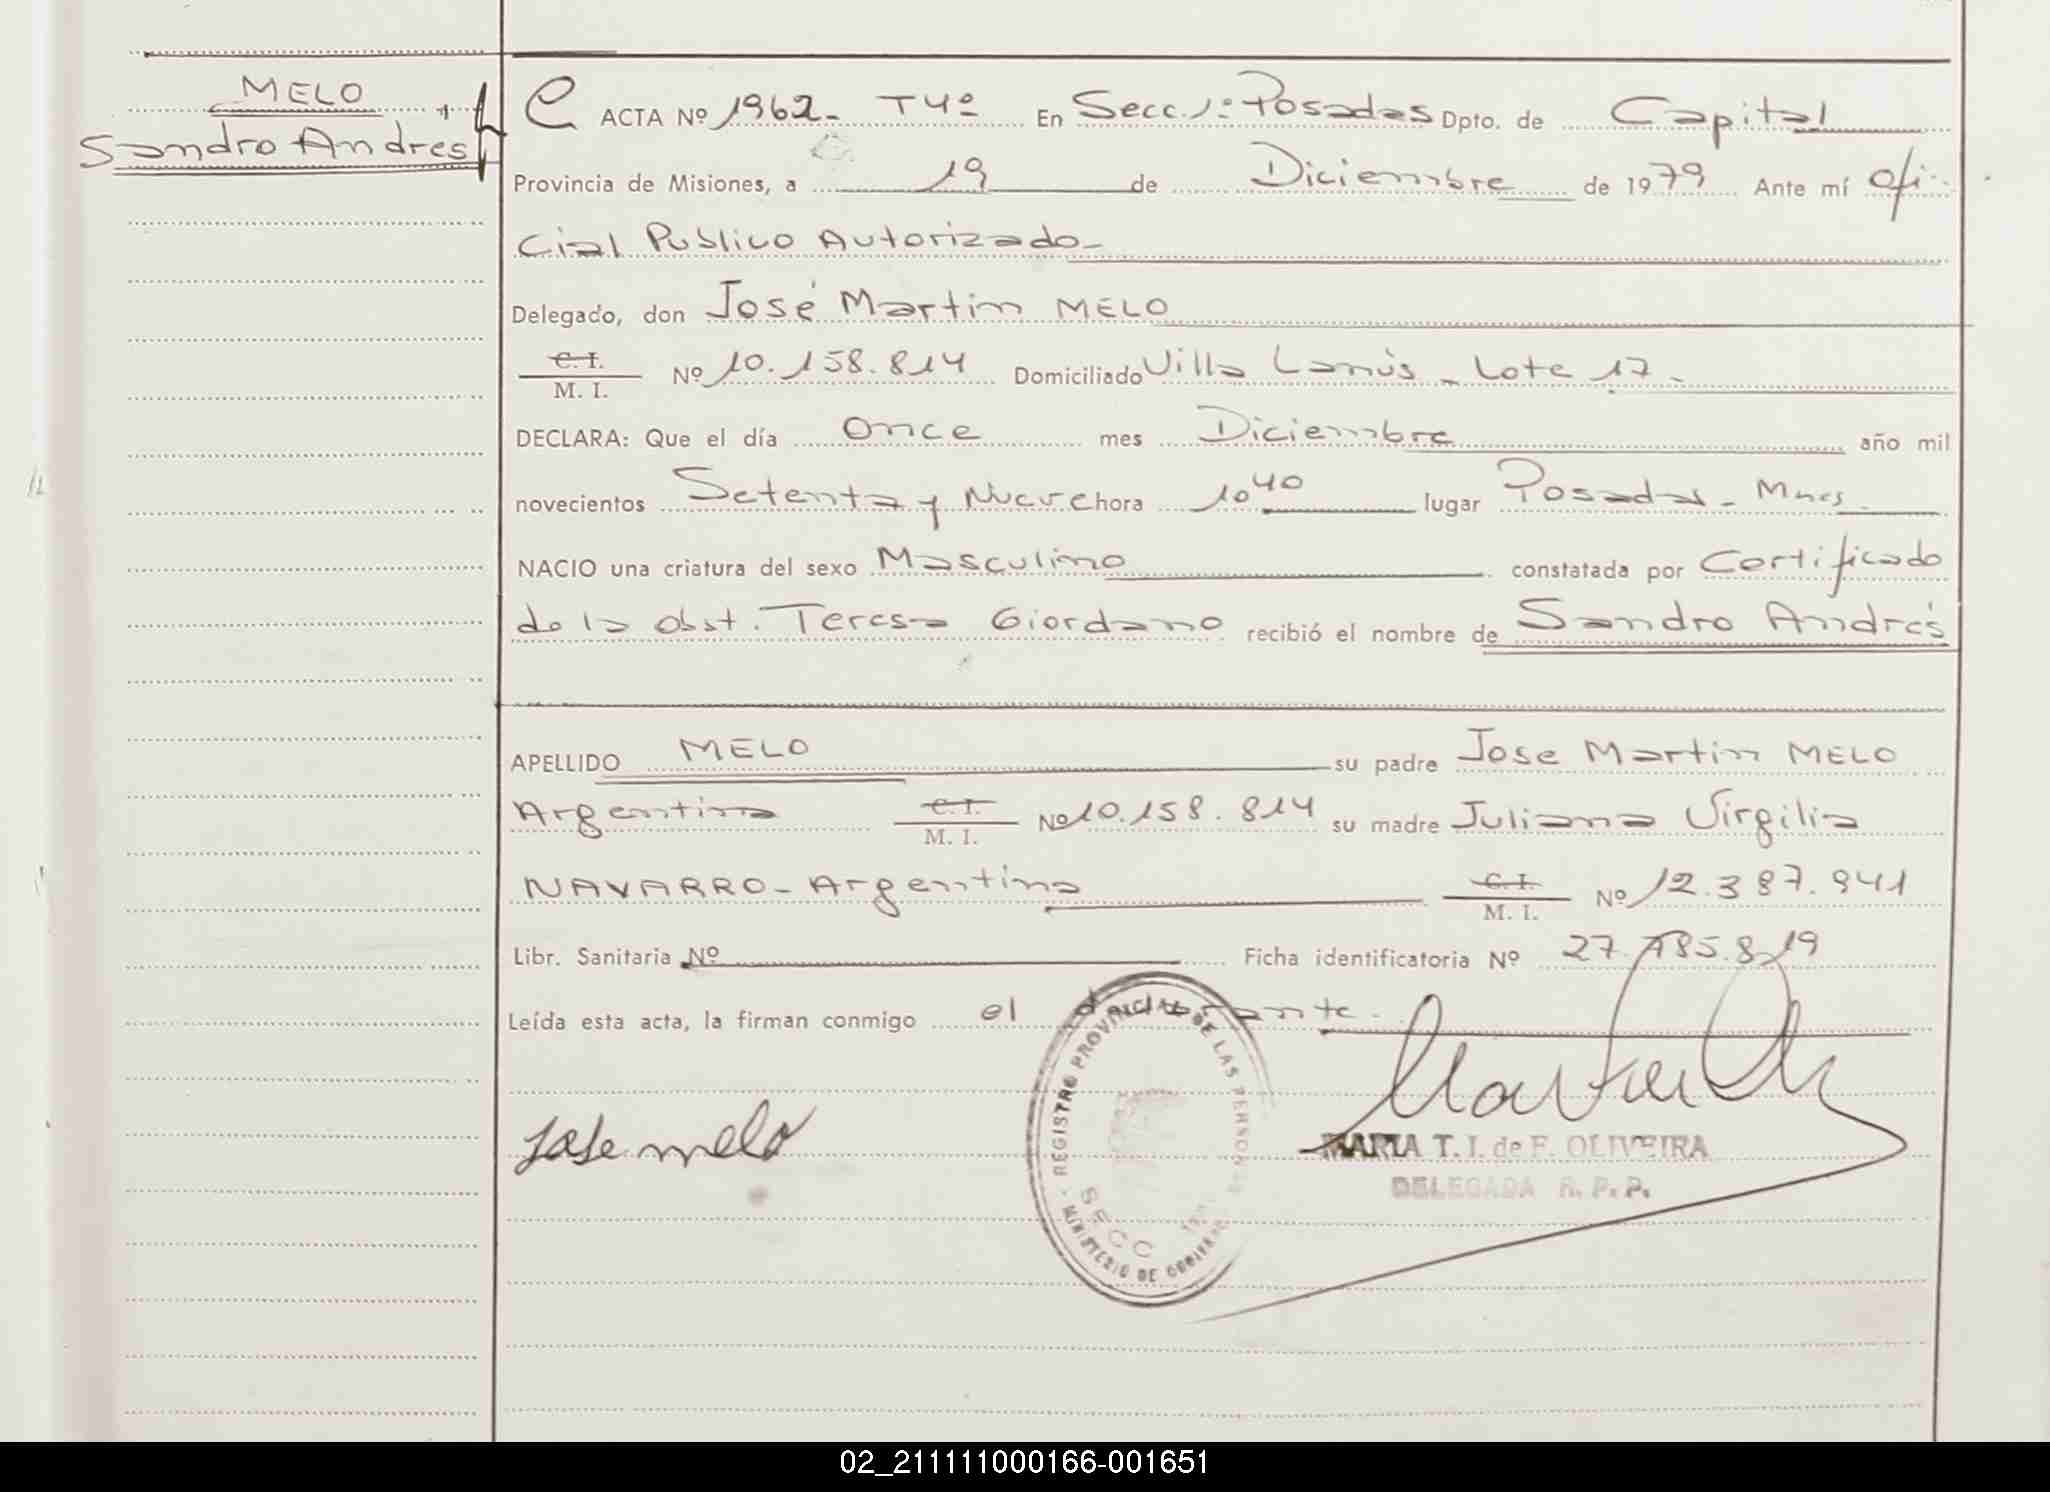 MELO
Sandro Andres
C ACTA Nº 1962- T4º En Secc. 1º Posadas Dpto. de Capital
Provincia de Misiones, a 19 de Diciembre de 1979 Ante mí ofi-
cial Publico Autorizado-
Delegado, don José Martin MELO
C. I.
M. I. Nº 10.158.814 Domiciliado Villa Lanús - Lote 17-
DECLARA: Que el día once mes Diciembre año mil
novecientos Setenta y Nueve hora 10 40 lugar Posadas - Mnes.
NACIO una criatura del sexo Masculino constatada por Certificado
de la obst. Teresa Giordano recibió el nombre de Sandro Andrés
APELLIDO MELO su padre Jose Martin MELO
Argentino C. I. M. I. Nº 10.158.814 su madre Juliana Virgilia
NAVARRO - Argentina C. I. M. I. Nº 12.387.941
Libr. Sanitaria Nº Ficha identificatoria Nº 27.785.819
Leída esta acta, la firman conmigo el declarante.
Jose melo
REGISTRO PROVINCIAL DE LAS PERSONAS
MINISTERIO DE GOBIERNO
SECC
MARIA T. I. de F. OLIVEIRA
DELEGADA R. P. P.
02_211111000166-001651